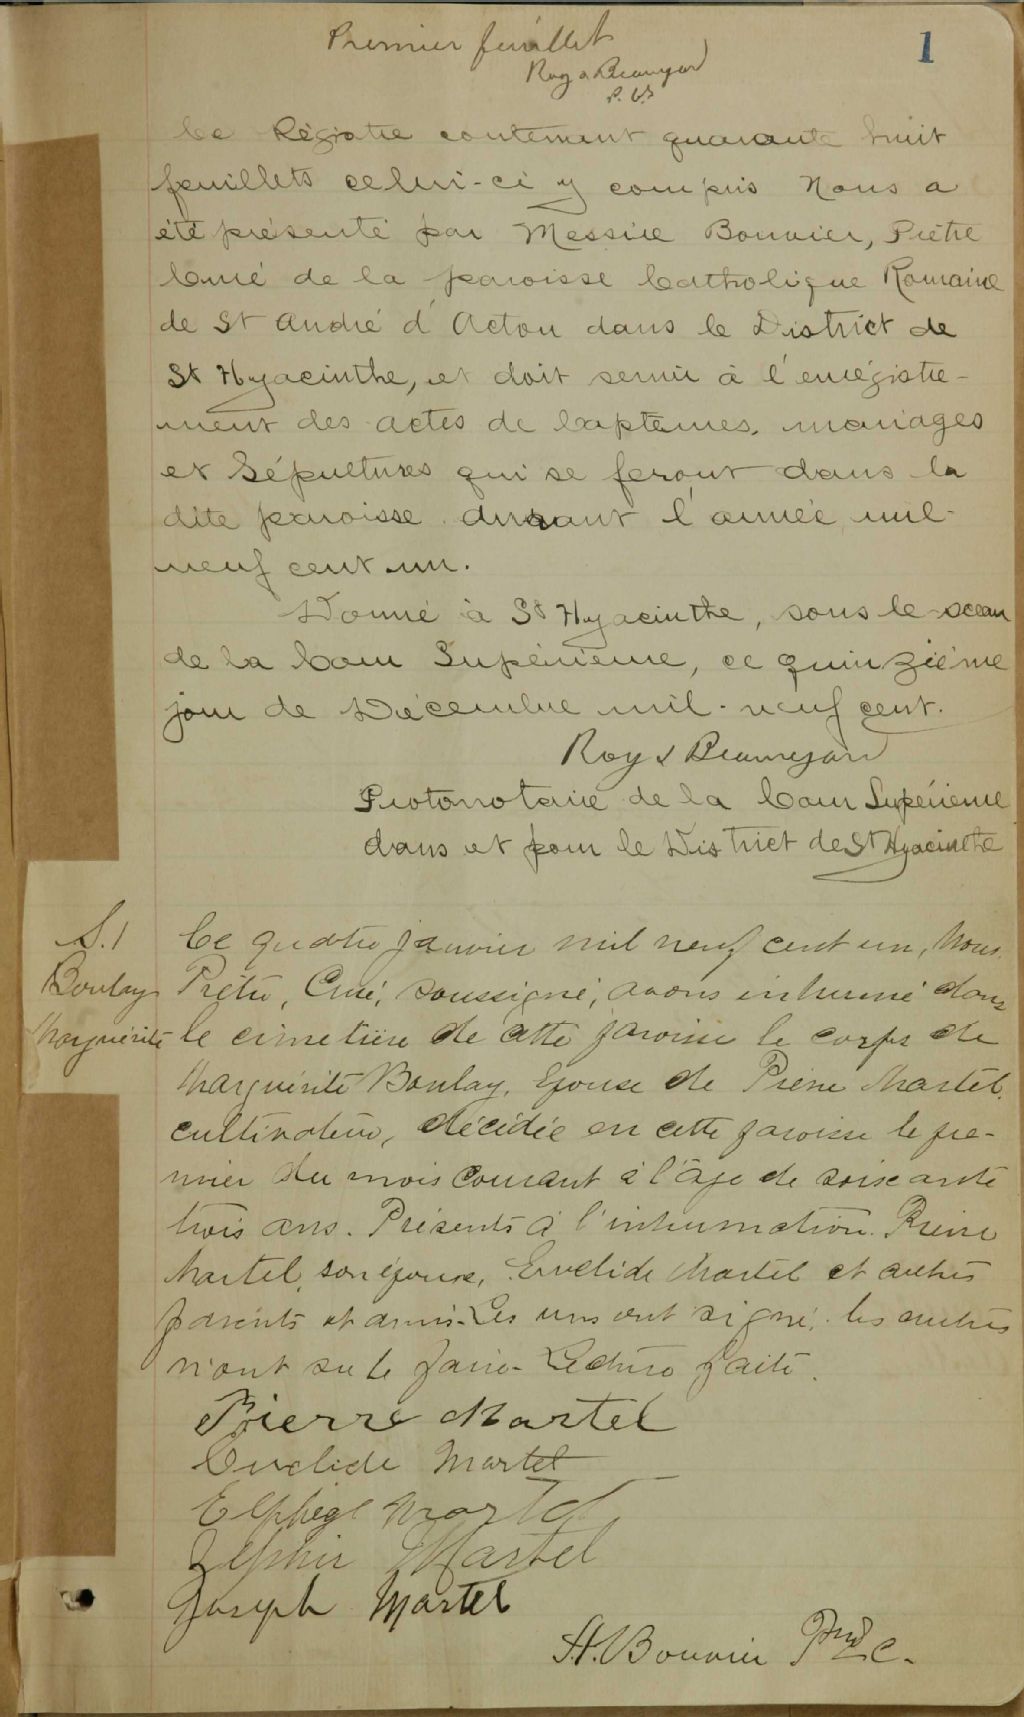 Premier feuillet
1
Roy & Beauregard
P.C.S.
Ce Régistre contenant quarante huit
feuillets celui-ci y compris Nous a
été présenté par Messire Bouvier, Prêtre
Curé de la paroisse Catholique Romaine
de St André d'Acton dans le District de
St Hyacinthe, et doit servir à l'enrégistre-
ment des actes de baptêmes, mariages
et Sépultures qui se feront dans la
dite paroisse durant l'année mil-
neuf cent un.
Donné à St Hyacinthe, sous le sceau
de la Cour Supérieure, ce quinzième
jour de Décembre mil-neuf cent.
Roy & Beauregard
Protonotaire de la Cour Supérieure
dans et pour le District de St Hyacinthe
S.1
Boulay
Marguérite
Ce quatre janvier mil neuf cent un, Nous,
Prêtre, Curé, soussigné, avons inhumé dans
le cimetière de cette paroisse le corps de
Marguérite Boulay, Epouse de Pierre Martel,
cultivateur, décédée en cette paroisse le pre-
mier du mois courant à l'âge de soixante
trois ans. Présents à l'inhumation Pierre
Martel, son époux, Euclide Martel et autres
parents et amis. Les uns ont signé, les autres
n'ont su le faire. Lecture faite.
Pierre Martel
Euclide Martel
Elphège Martel
Zéphir Martel
Joseph Martel
H. Bouvier Ptre C.